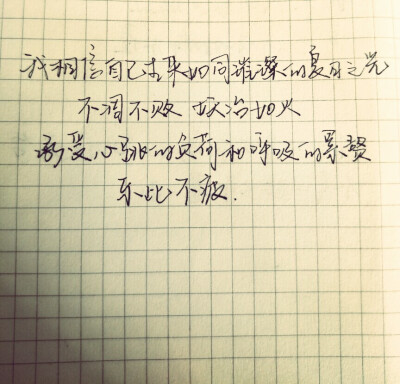 我相信自己生来如同璀璨的夏日之光
不凋不败 妖冶如火
承受心跳的负荷和呼吸的累赘
乐此不疲.